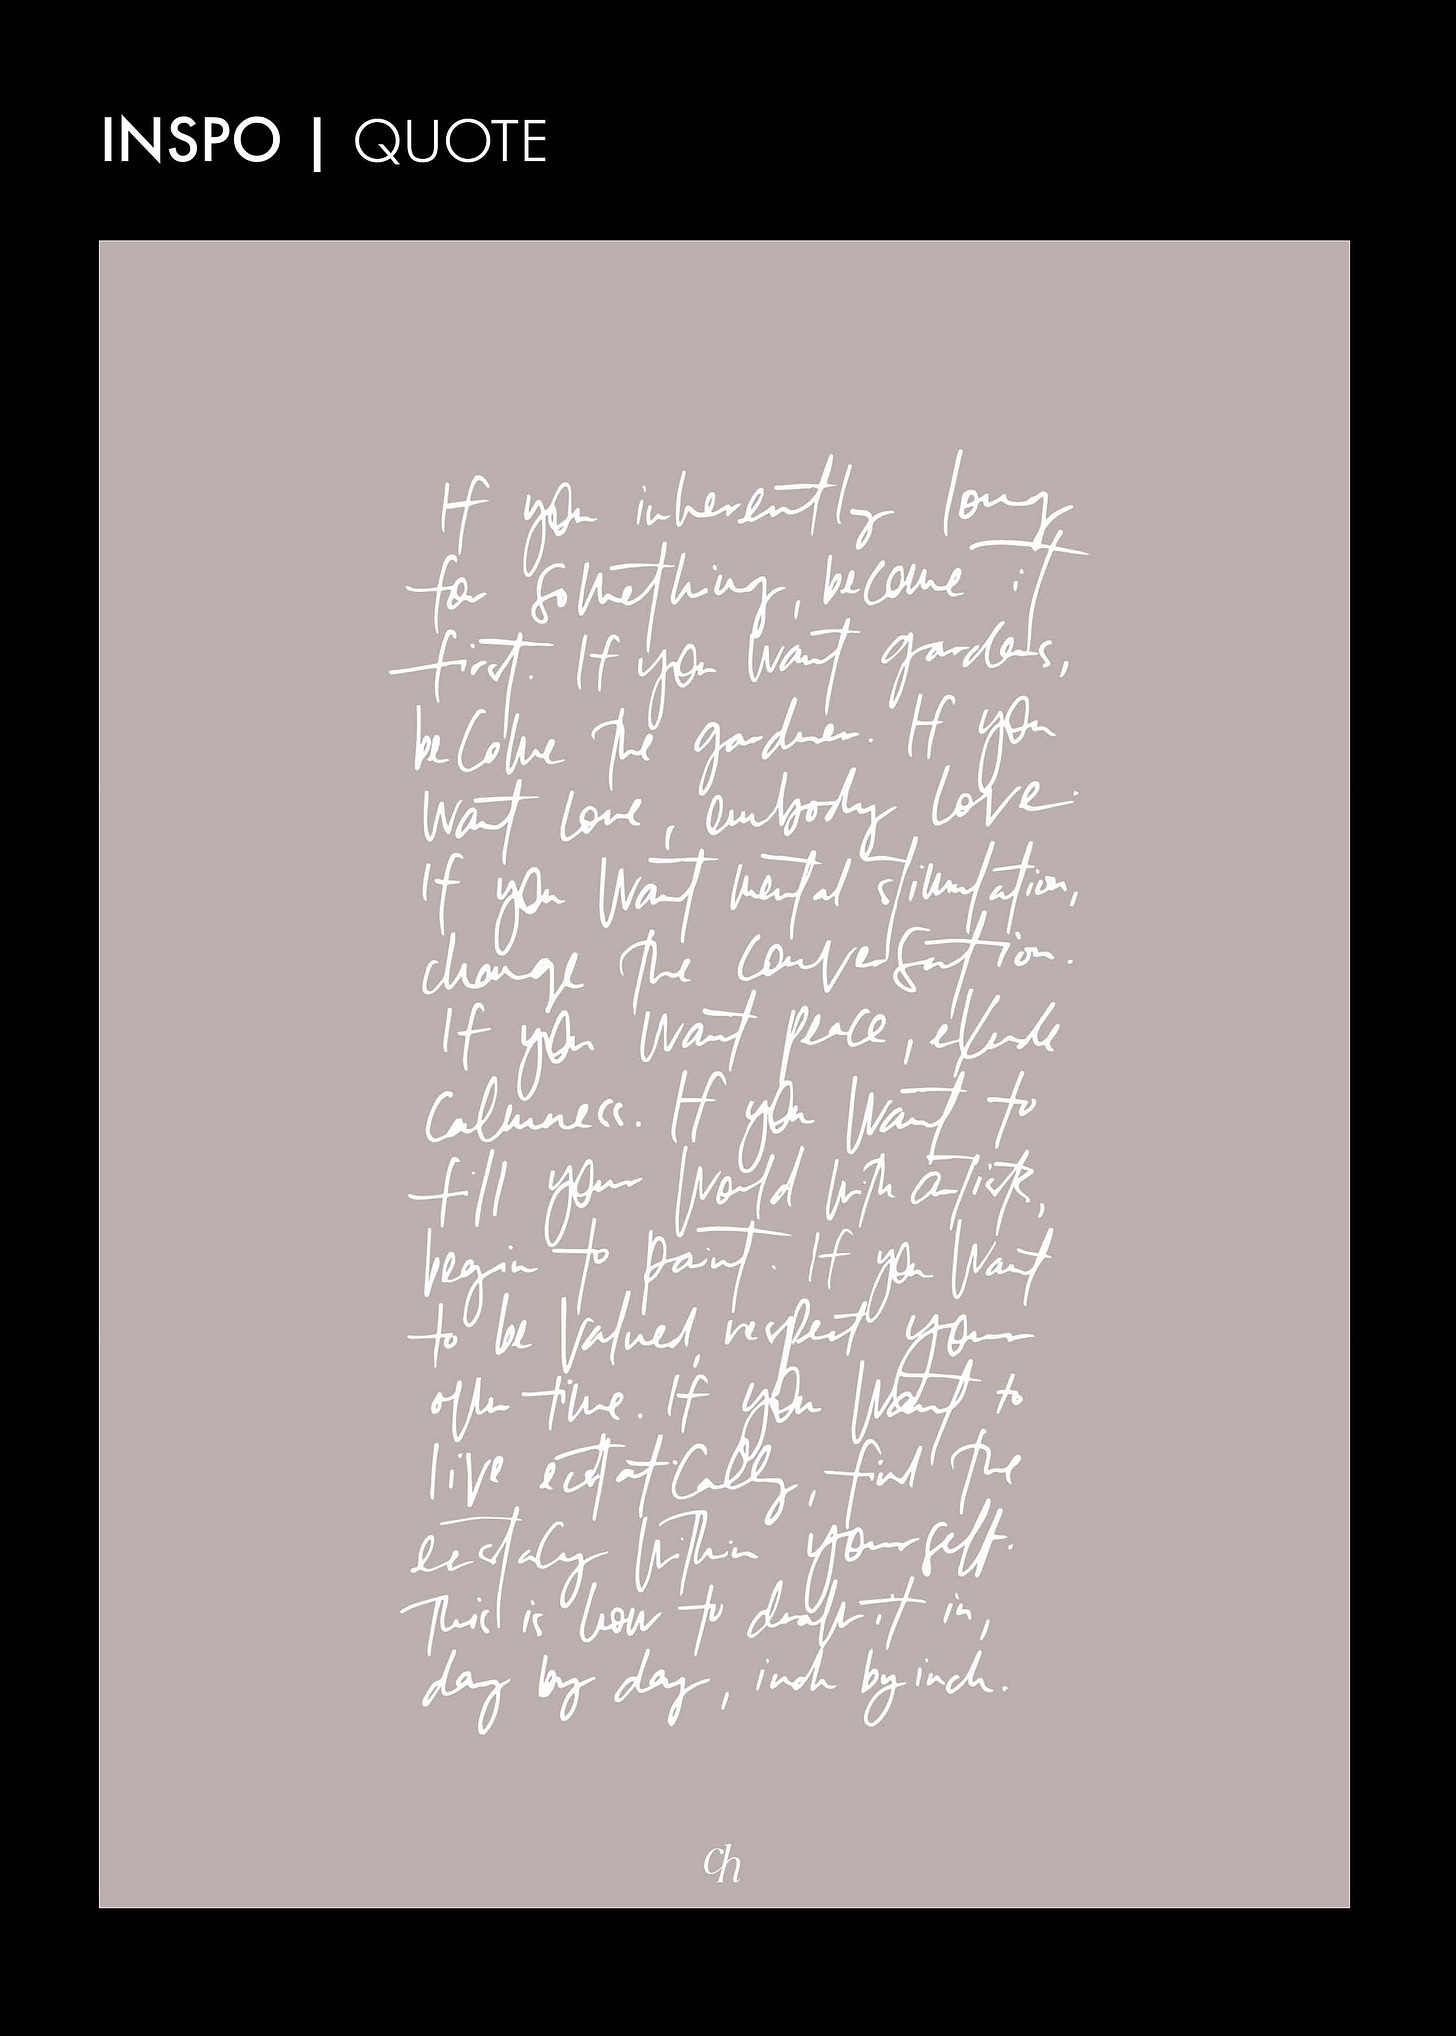 INSPO | QUOTE
If you inherently long
for something, become it
first. If you want gardens,
become the gardner. If you
want love, embody love.
If you want mental stimulation,
change the conversation.
If you want peace, exude
calmness. If you want to
fill your world with artists,
begin to paint. If you want
to be valued, respect your
own time. If you want to
live ecstatically, find the
ecstacy within yourself.
This is how to draft it in,
day by day, inch by inch.
ch